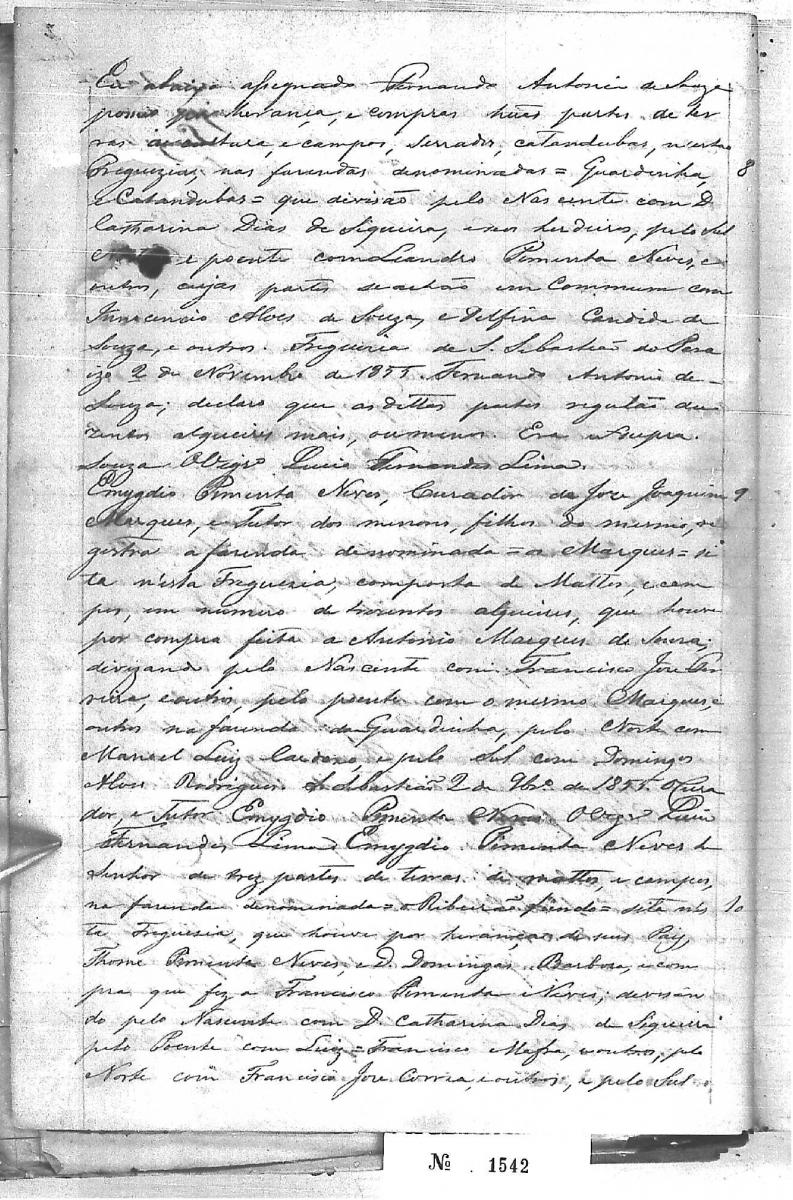 Eu abaixo assegnado Fernando Antonio de Souza
possuo por herança, e compras huns partes de ter
ras de cultura, e campos, serrados, catandubas, n'esta
Freguezia, nas fazendas denominadas = Guardinha, 8
e Catandubas = que devisão pelo Nascente com D.
Catharina Dias de Siqueira, e seos herdeiros, pelo Sul
e poente com Leandro Pimenta Neves, e
outros, cujas partes se achão em Commum com
Innocencio Alves de Souza, e Delfina Candida de
Souza, e outros. Freguezia de S. Sebastião do Para
izo 2 de Novembro de 1855. Fernando Antonio de
Souza; declaro que as dittas partes regulão du
zentos alqueires mais, ou menos. Era ut supra.
Souza O Vigrº Lucio Fernandes Lima.
Emygdio Pimenta Neves, Curador de Joze Joaquim 9
Marques, e Tutor dos menores, filhos do mesmo, re
gistra a fazenda denominada = os Marques = si
ta n'esta Freguezia, composta de Mattos, e cam
pos, em numero de trezentos alqueires, que houve
por compra feita a Antonio Marques de Souza;
divizando pelo Nascente com Francisco Joze Fer
reira, e outros, pelo poente com o mesmo Marques, e
outros na fazenda da Guardinha, pelo Norte com
Manoel Luiz Cardozo, e pelo Sul com Domingos
Alves Rodrigues. S. Sebastião 2 de 9brº de 1855. O Cura
dor, e Tutor Emygdio Pimenta Neves. O Vigrº Lucio
Fernandes Lima. Emygdio Pimenta Neves he
Senhor de trez partes de terras de mattos, e campos,
na fazenda denominada = o Ribeirão fundo = sita n'es 10
ta Freguezia, que houve por herança de seus Pay,
Thome Pimenta Neves, e D. Domingas Barboza, e com
pra que fez a Francisco Pimenta Neves; devisan
do pelo Nascente com D. Catharina Dias de Siqueira
pelo Poente com Luiz = Francisco Mafra, e outros, pelo
Norte com Francisco Joze Correa, e outros, e pelo Sul
Nº 1542